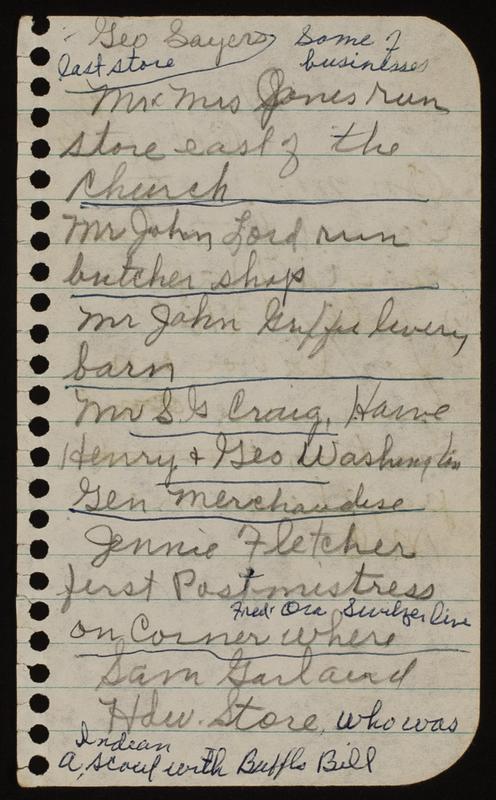 Geo Sayers Some of
last store businesses
Mr & Mrs Jones run
store east of the
church
Mr John Lord run
butcher shop
Mr John livery
barn
Mr S G Craig,
Henry & Geo Washington
Gen Merchandise
Jennie Fletcher
first Postmistress
Fred & Ora Switzer live
on Corner where
Sam Garland
Hdw. Store, who was
Indian
a, scout with Bufflo Bill